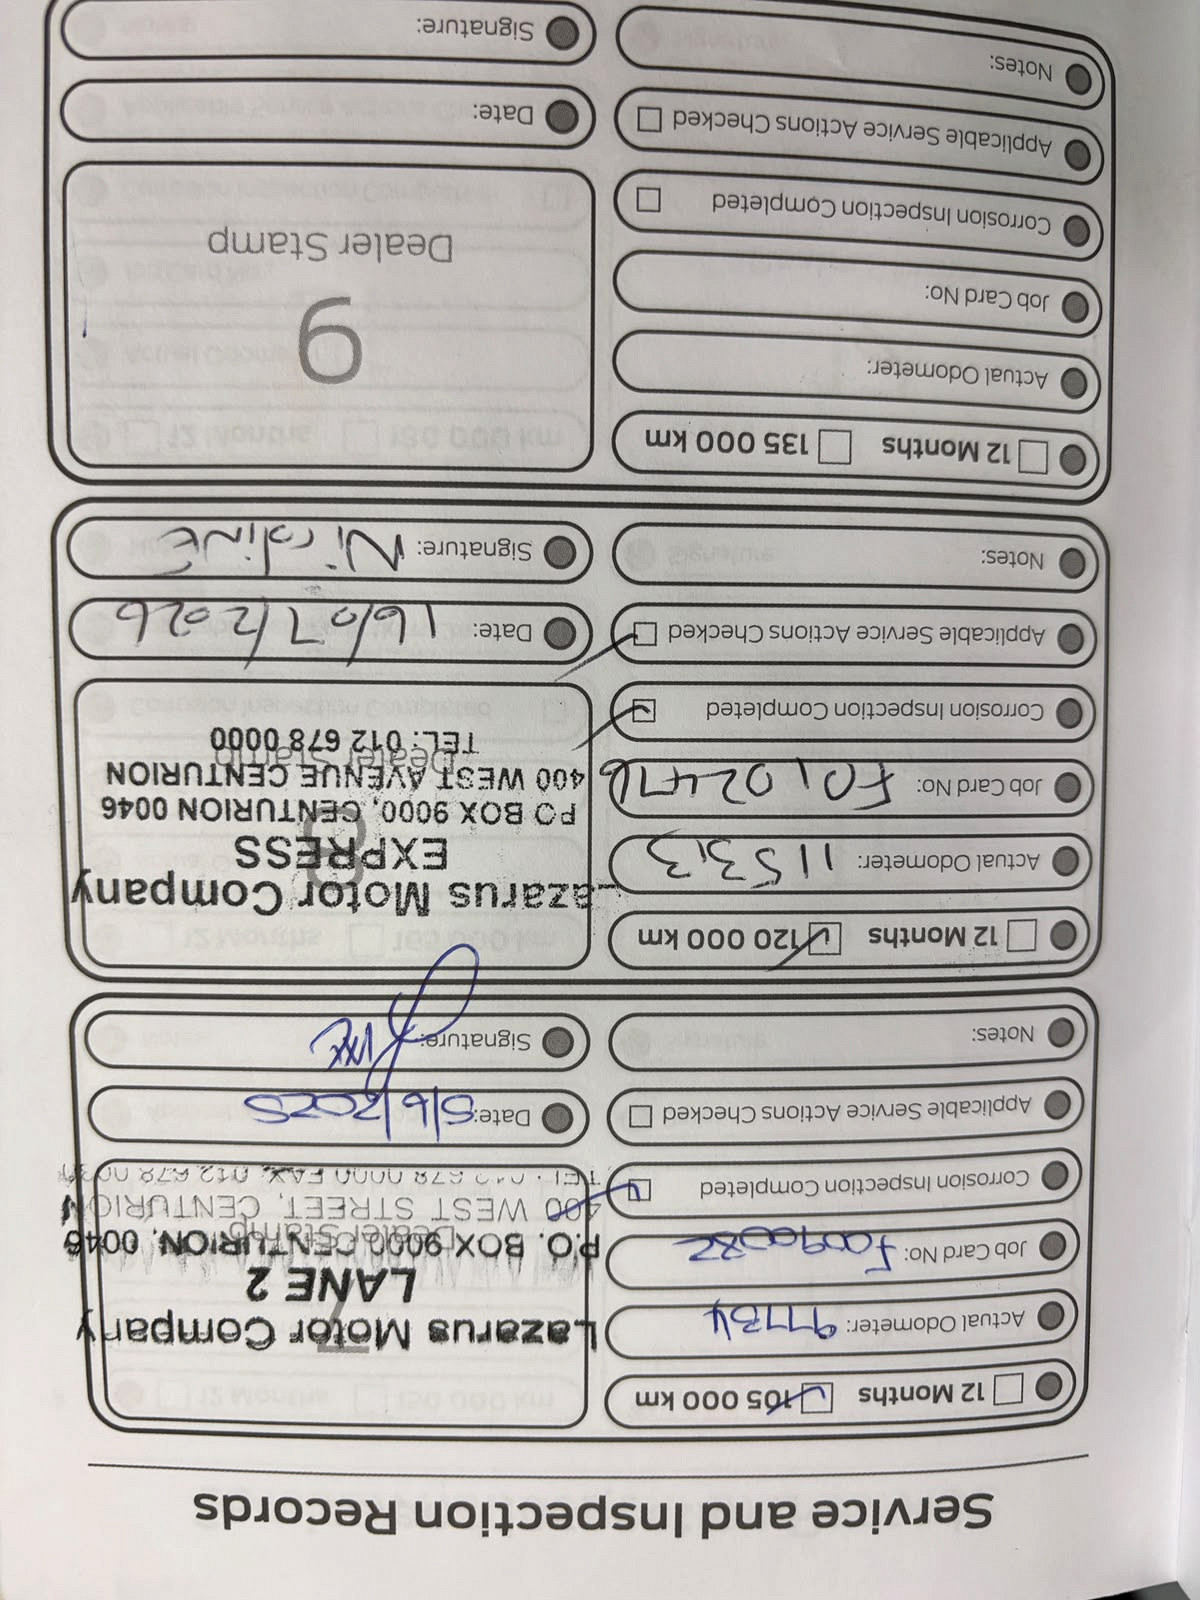 Service and Inspection Records
12 Months
105 000 km
Actual Odometer: 97734
Job Card No:
Corrosion Inspection Completed
Applicable Service Actions Checked
Notes:
Lazarus Motor Company
LANE 2
P.O. BOX 9000, CENTURION, 0046
400 WEST STREET, CENTURION
TEL: 012 678 0000 FAX: 012 678
7
Dealer Stamp
Date: 5/6/2025
Signature:
12 Months
120 000 km
Actual Odometer: 115313
Job Card No: FA102476
Corrosion Inspection Completed
Applicable Service Actions Checked
Notes:
Lazarus Motor Company
EXPRESS
PO BOX 9000, CENTURION 0046
400 WEST AVENUE CENTURION
TEL: 012 678 0000
8
Dealer Stamp
Date: 16/07/2026
Signature:
12 Months
135 000 km
Actual Odometer:
Job Card No:
Corrosion Inspection Completed
Applicable Service Actions Checked
Notes:
9
Dealer Stamp
Date:
Signature: